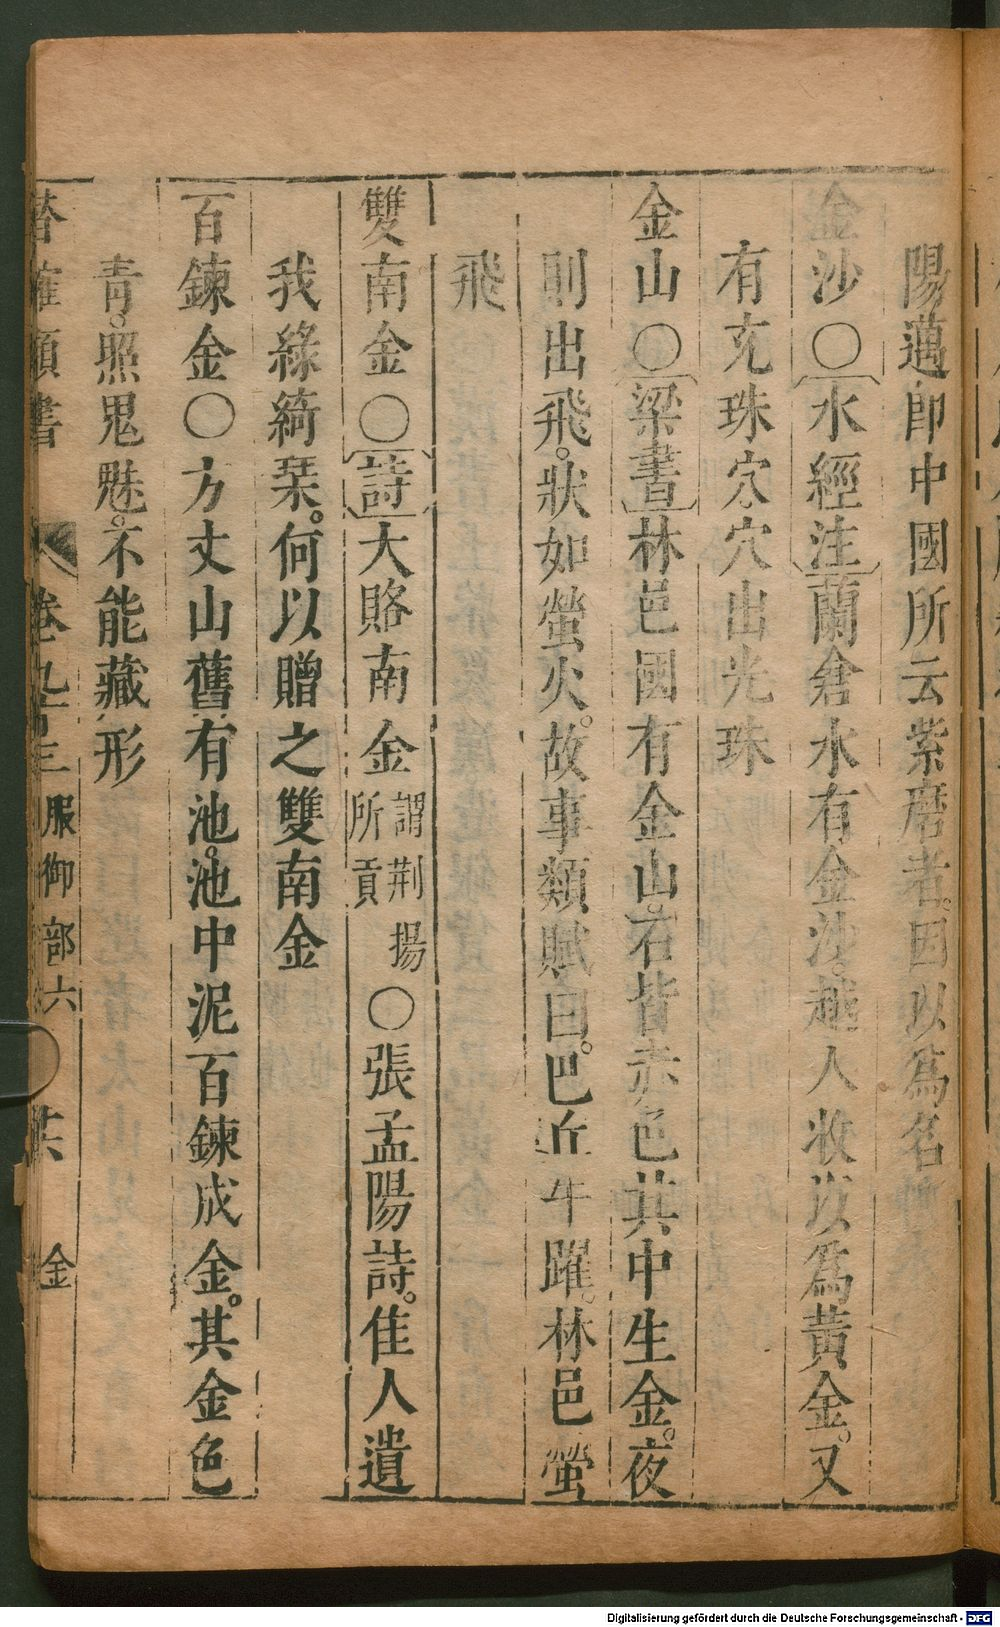 陽邁即中國所云紫磨者。因以爲名
金沙〇水經注蘭倉水有金沙。越人收以爲黃金。又
有光珠穴。穴出光珠
金山〇梁書林邑國有金山。石皆赤色其中生金。夜
則出飛。狀如螢火。故事類賦曰。巴丘牛躍。林邑螢
飛
雙南金〇詩大賂南金謂荆揚所貢〇張孟陽詩。佳人遺
我綠綺琴。何以贈之雙南金
百鍊金〇方丈山舊有池。池中泥百鍊成金。其金色
青。照鬼魅。不能藏形
潛確類書 卷九十三 服御部六 金
Digitalisierung gefördert durch die Deutsche Forschungsgemeinschaft - DFG